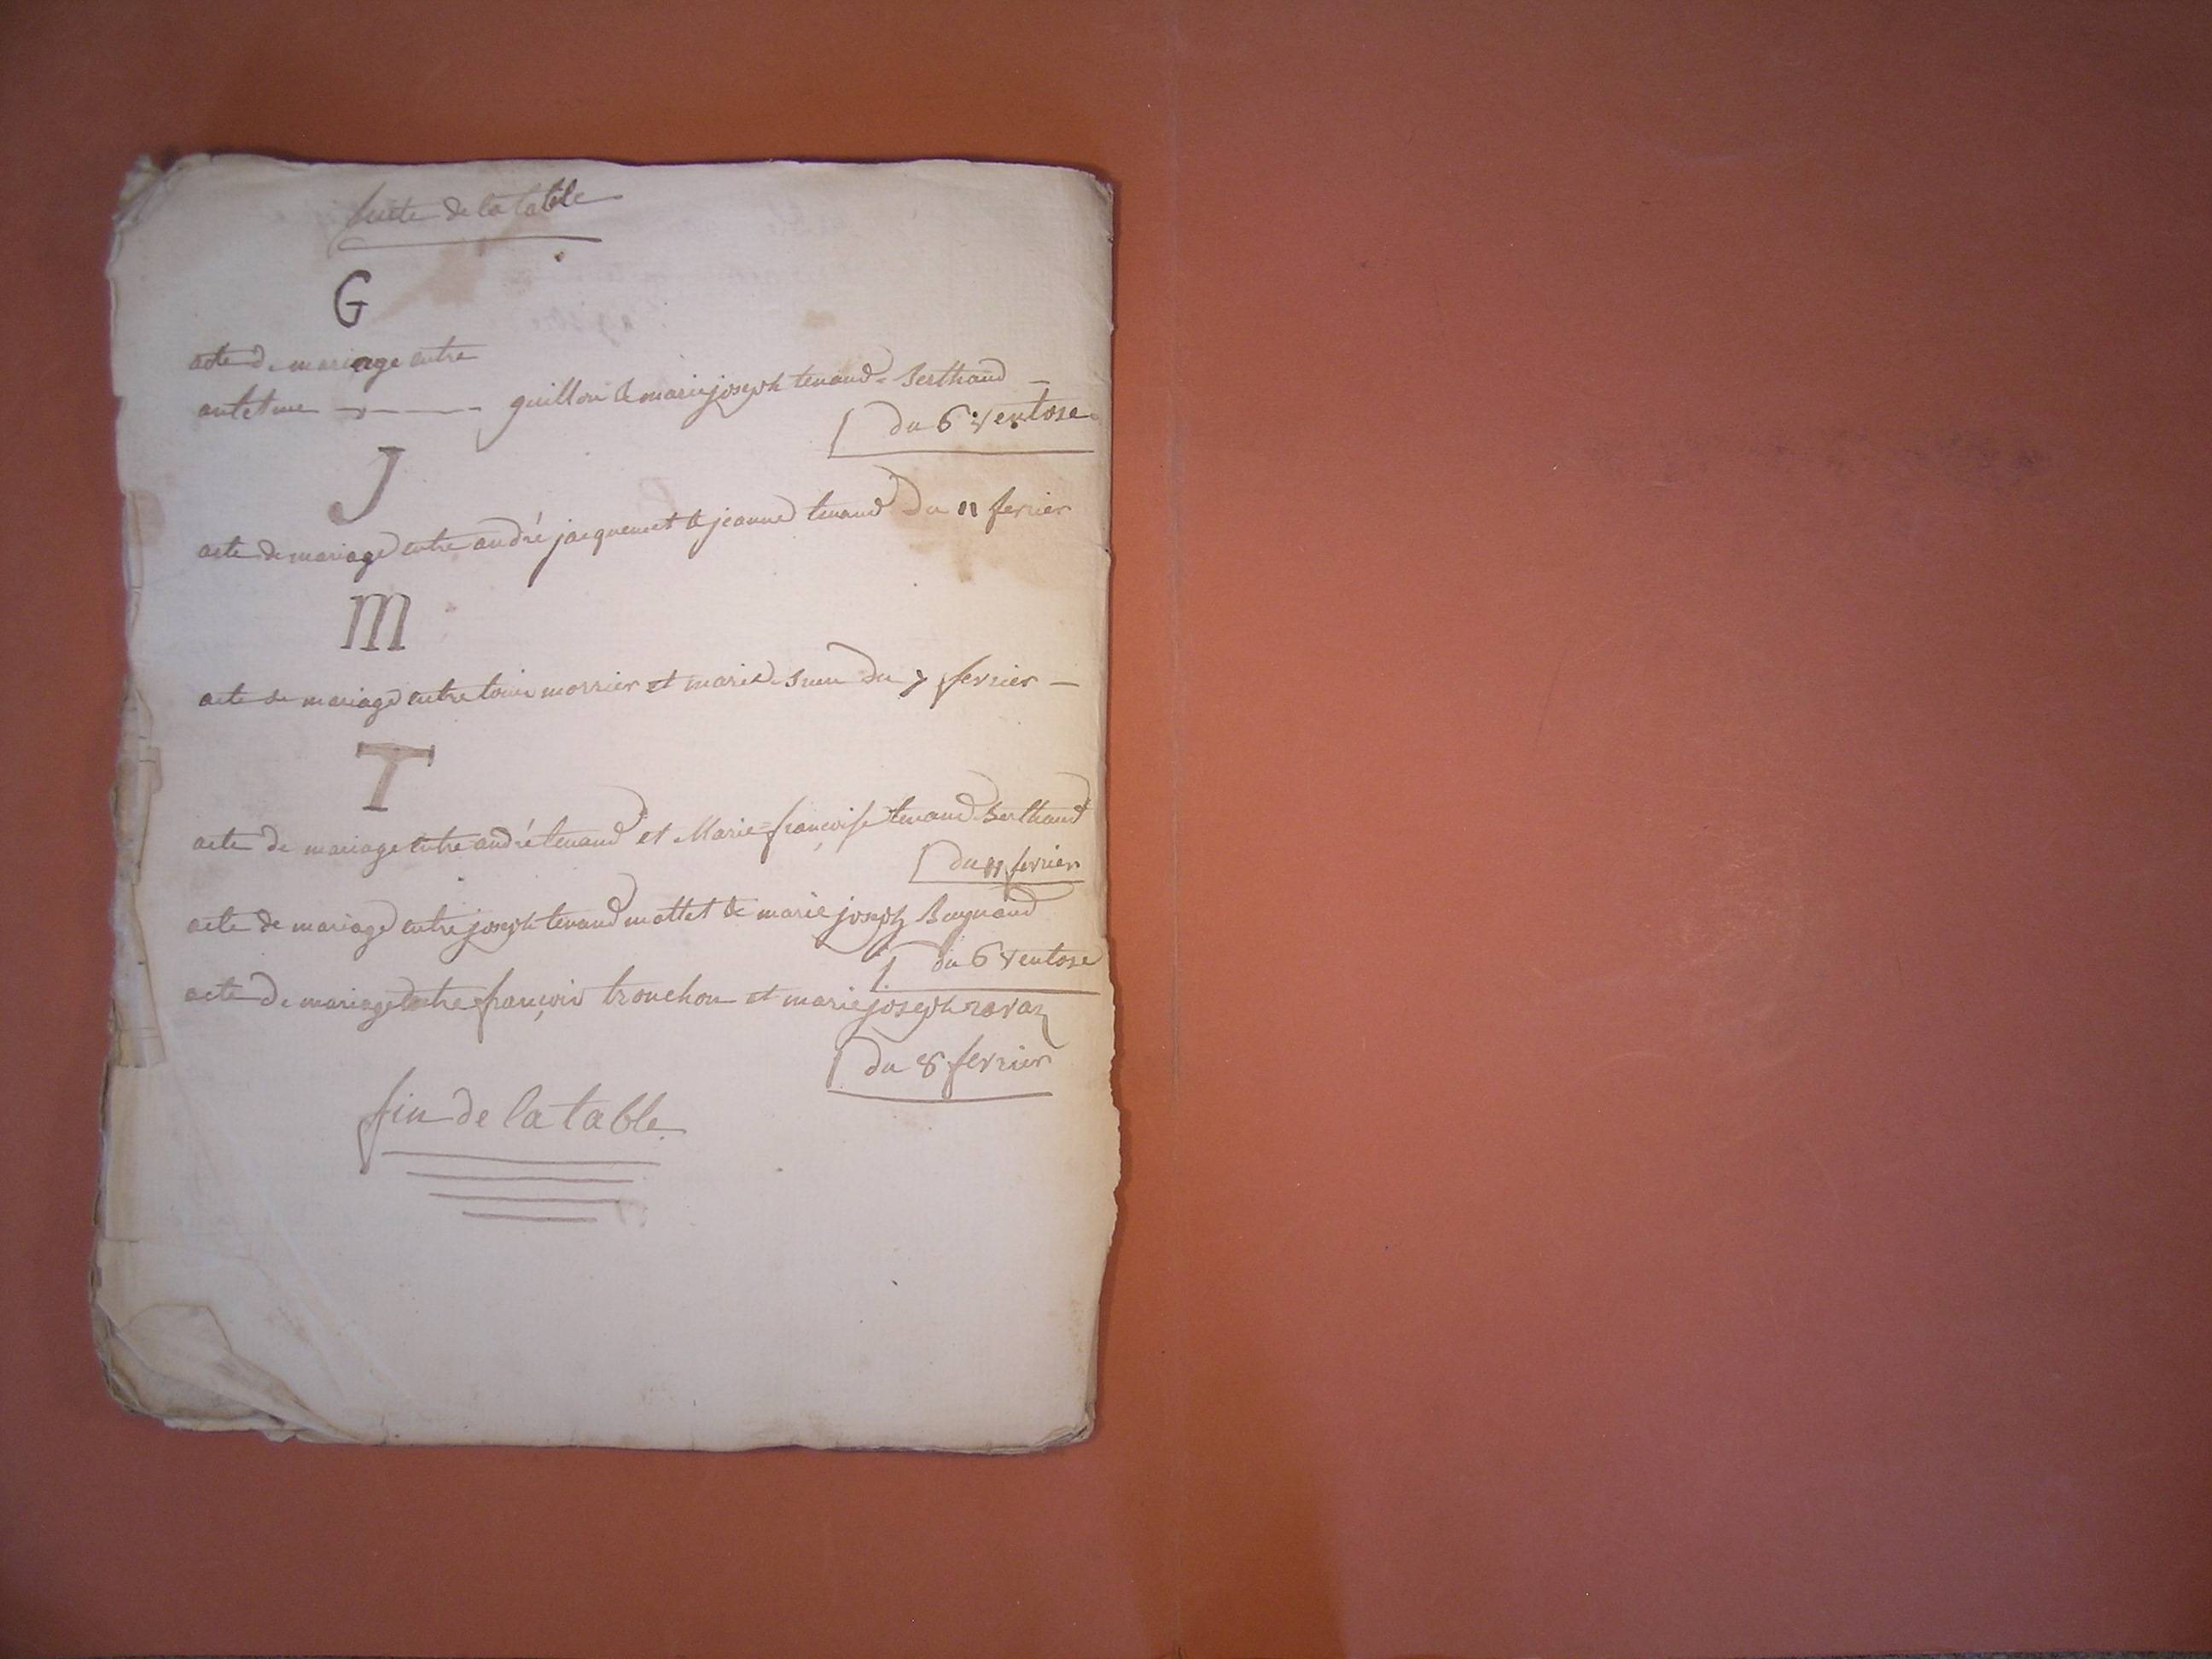 suite de la table
G
acte de mariage entre
antelme guillon & marie joseph tenand-Berthand
du 6 ventose
J
acte de mariage entre andré jacquemet & jeanne tenand Du 11 fevrier
m
acte de mariage entre morrier et marie du 7 fevrier
T
acte de mariage entre andré tenand et Marie=françoise tenand Berthand
du 11 fevrier
acte de mariage entre joseph tenand mottet & marie joseph Buynand
du 6 ventose
acte de mariage entre françois tronchon et marie joseph ravaz
du 8 fevrier
fin de la table